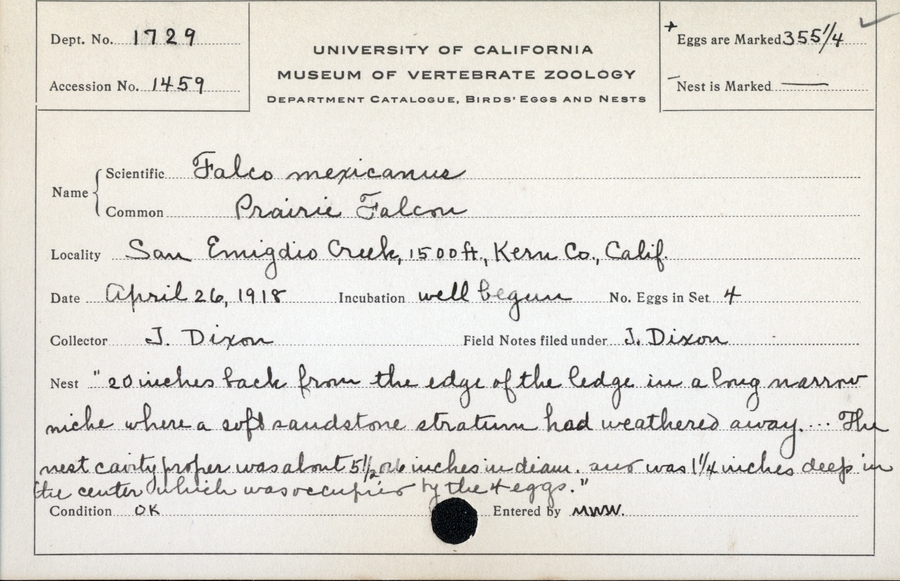 Dept. No. 1729
Accession No. 1459
UNIVERSITY OF CALIFORNIA
MUSEUM OF VERTEBRATE ZOOLOGY
DEPARTMENT CATALOGUE, BIRDS' EGGS AND NESTS
+ Eggs are Marked 355 1/4 ✓
– Nest is Marked —
Name { Scientific Falco mexicanus
Common Prairie Falcon
Locality San Emigdio Creek, 1500 ft., Kern Co., Calif.
Date April 26, 1918 Incubation well begun No. Eggs in Set 4
Collector J. Dixon Field Notes filed under J. Dixon
Nest "20 inches back from the edge of the ledge in a long narrow
niche where a soft sandstone stratum had weathered away.... The
nest cavity proper was about 5 1/2 or 6 inches in diam. and was 1 1/4 inches deep in
the center which was occupied by the 4 eggs."
Condition OK Entered by MWW.